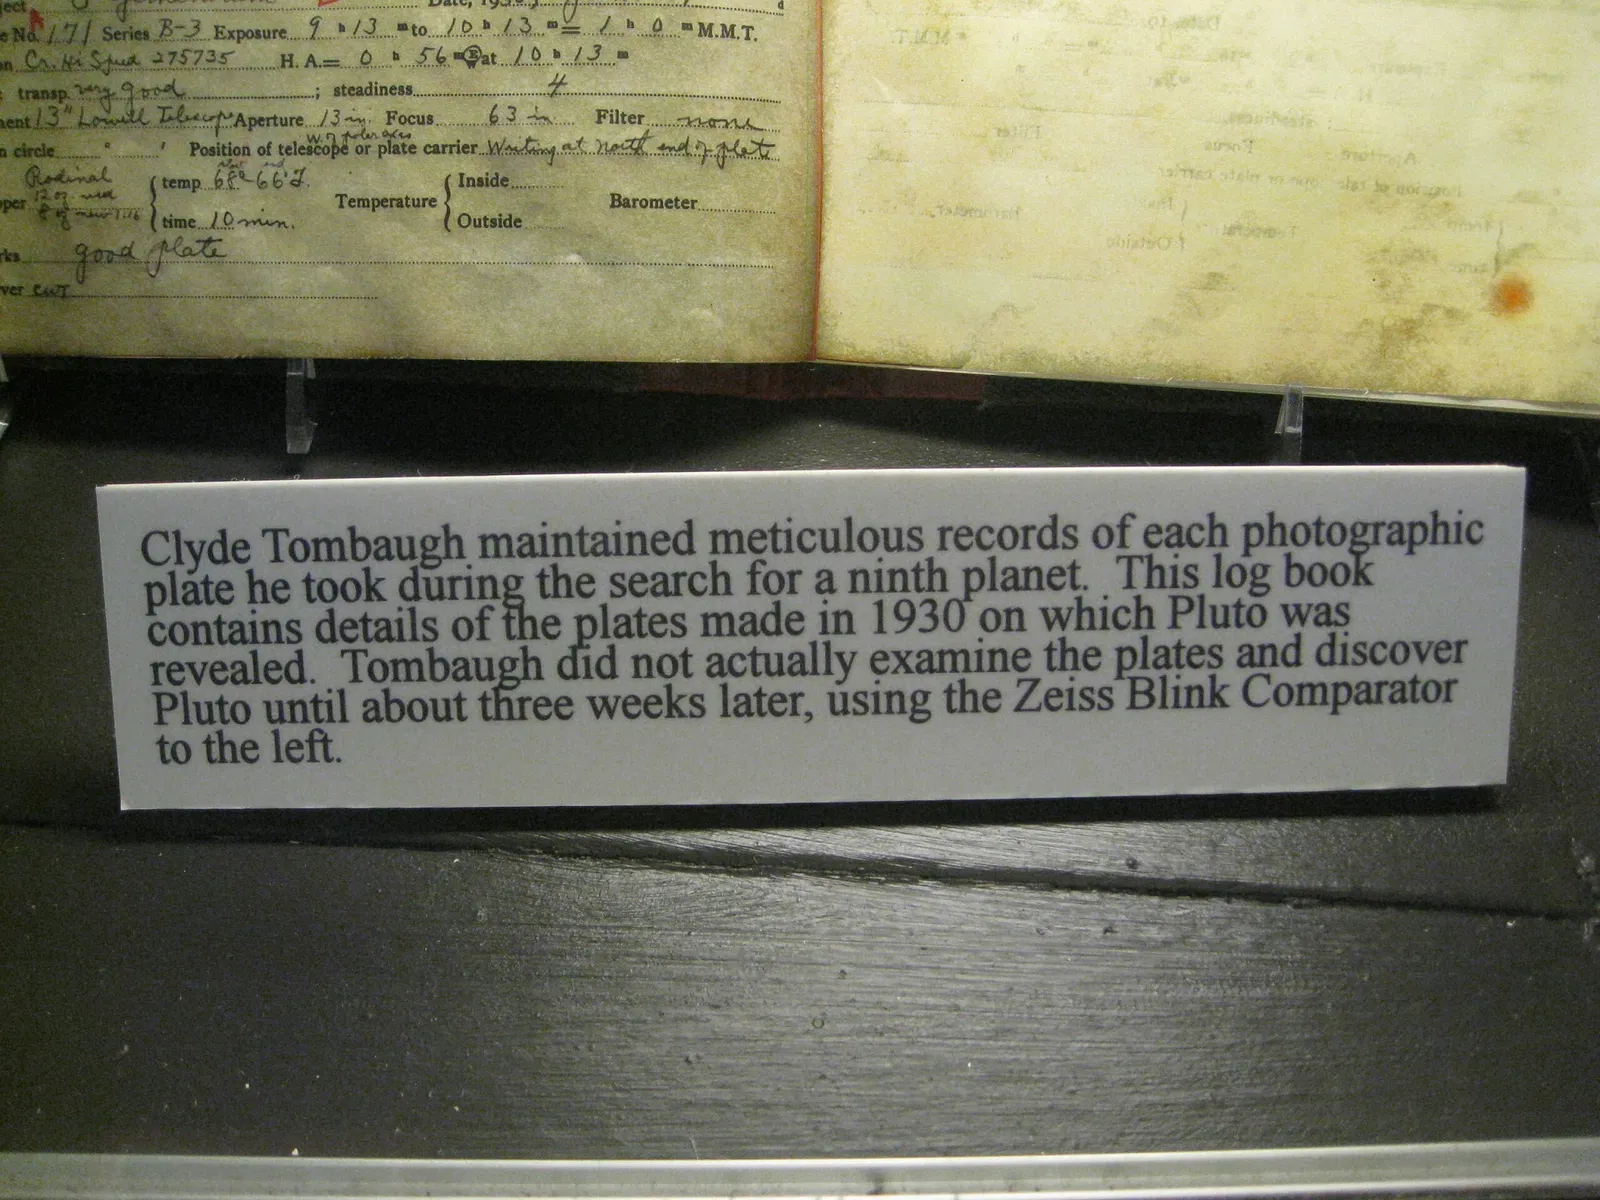 Date, 193
e No. 171 Series B-3 Exposure 9 h 13 m to 10 h 13 m = 1 h 0 m M.M.T.
275735 H. A.= 0 h 56 m E at 10 h 13 m
transp. very good ; steadiness 4
ment 13" Lowell Telescope Aperture 13 in. Focus 63 in Filter none
W. of polar axis
n circle ° ' Position of telescope or plate carrier Writing at North end of plate
Rodinal temp 68°-66° Inside
Temperature Barometer
time 10 min. Outside
rks good plate
ver CWT
Clyde Tombaugh maintained meticulous records of each photographic
plate he took during the search for a ninth planet. This log book
contains details of the plates made in 1930 on which Pluto was
revealed. Tombaugh did not actually examine the plates and discover
Pluto until about three weeks later, using the Zeiss Blink Comparator
to the left.